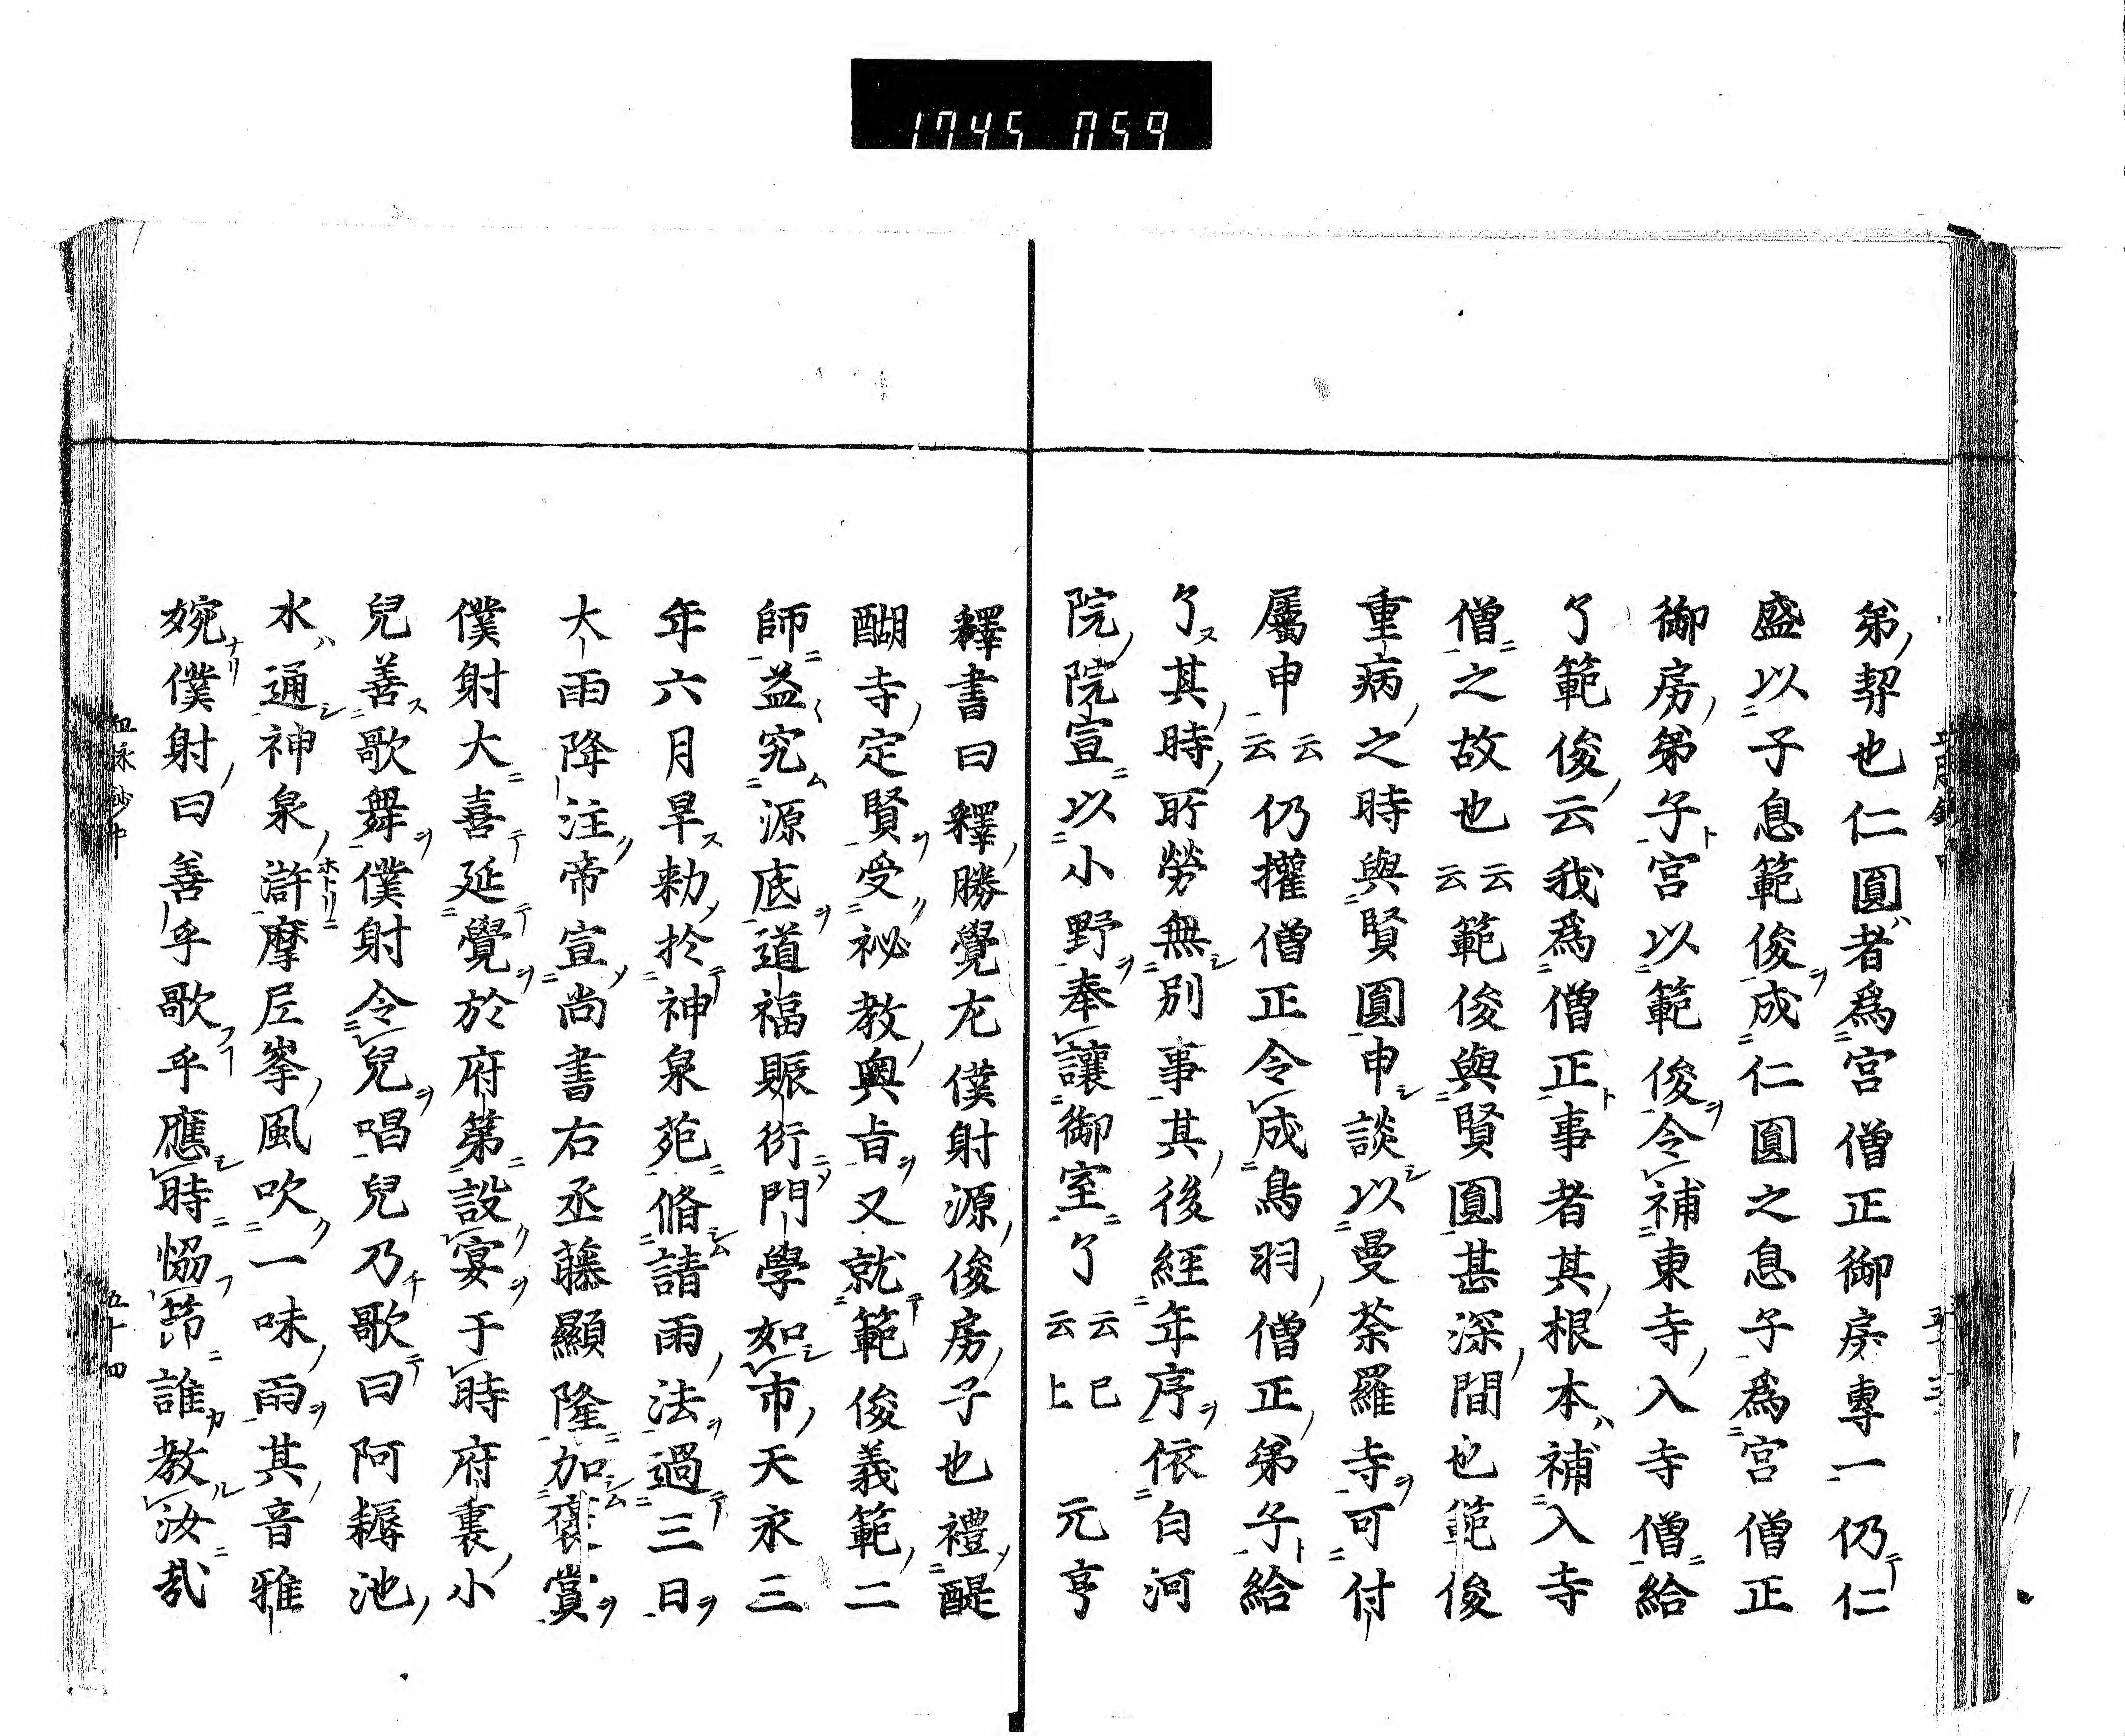 1745 059
弟契也仁圓者爲宮僧正御房專一仍仁
盛以子息範俊成仁圓之息子爲宮僧正
御房弟子宮以範俊令補東寺入寺僧給
了範俊云我爲僧正事者其根本補入寺
僧之故也云云範俊與賢圓甚深間也範俊
重病之時與賢圓申談以曼荼羅寺可付
屬申云云仍權僧正令成鳥羽僧正弟子給
了其時所勞無別事其後經年序依白河
院院宣以小野奉讓御室了云云已上 元亨
釋書曰釋勝覺尤僕射源俊房子也禮醍
醐寺定賢受祕教奧旨又就範俊義範二
師益究源底道福賑衍門學如市天永三
年六月旱勅於神泉苑脩請雨法過三日
大雨降注帝宣尚書右丞藤顯隆加褒賞
僕射大喜延覺於府第設宴于時府裏小
兒善歌舞僕射令兒唱兒乃歌曰阿耨池
水通神泉滸摩尼峯風吹一味雨其音雅
婉僕射曰善乎歌乎應時恊節誰教汝哉
血脉鈔中 五十四